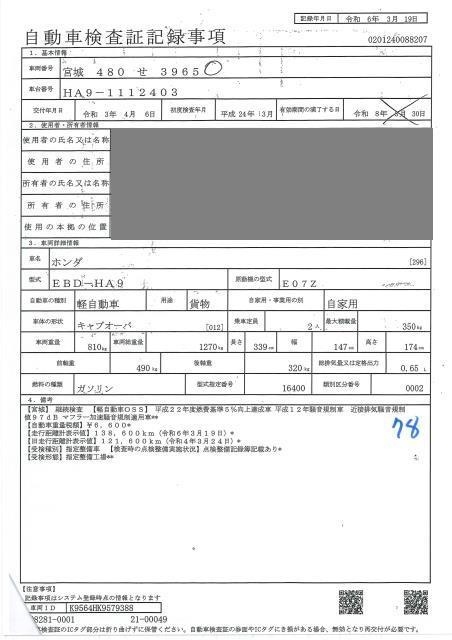 記録年月日 令和 6年 3月 19日
自動車検査証記録事項
0201240088207
1. 基本情報
車両番号 宮城 480 せ 3965
車台番号 HA9-1112403
交付年月日 令和 3年 4月 6日 初度検査年月 平成 24年 3月 有効期間の満了する日 令和 8年 3月 30日
2. 使用者・所有者情報
使用者の氏名又は名称
使用者の住所
所有者の氏名又は名称
所有者の住所
使用の本拠の位置
3. 車両詳細情報
車名 ホンダ [296]
型式 EBD-HA9 原動機の型式 E07Z
自動車の種別 軽自動車 用途 貨物 自家用・事業用の別 自家用
車体の形状 キャブオーバ [012] 乗車定員 2人 最大積載量 350kg
車両重量 810kg 車両総重量 1270kg 長さ 339cm 幅 147cm 高さ 174cm
前軸重 490kg 後軸重 320kg 総排気量又は定格出力 0.65 L
燃料の種類 ガソリン 型式指定番号 16400 類別区分番号 0002
4. 備考
【宮城】 継続検査 【軽自動車OSS】 平成22年度燃費基準5%向上達成車 平成12年騒音規制車 近接排気騒音規制
値97dB マフラー加速騒音規制適用車**
【自動車重量税額】¥6,600*
【走行距離計表示値】138,600km(令和6年3月19日)*
【旧走行距離計表示値】121,600km(令和4年3月24日)*
【受検種別】指定整備車 【検査時の点検整備実施状況】点検整備記録簿記載あり*
【受検形態】指定整備工場**
78
【注意事項】
記録事項はシステム登録時点の情報となります
車両ID K9564HK9579388
08281-0001 21-00049
車検査証のICタグ部分は折り曲げずに保管ください。自動車検査証の券面やICタグにき損がある場合、無効となり再交付が必要です。